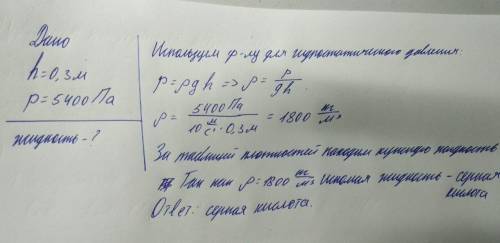 Дано
h=0,3м
p=5400Па
жидкость-?
Используем ф-лу для гидростатического давления:
p=ρgh => ρ = p/gh
ρ = 5400Па / 10 м/с² · 0,3м = 1800 кг/м³
За таблицей плотностей находим нужную жидкость
Так как ρ=1800 кг/м³ искомая жидкость - серная
кислота
Ответ: серная кислота.